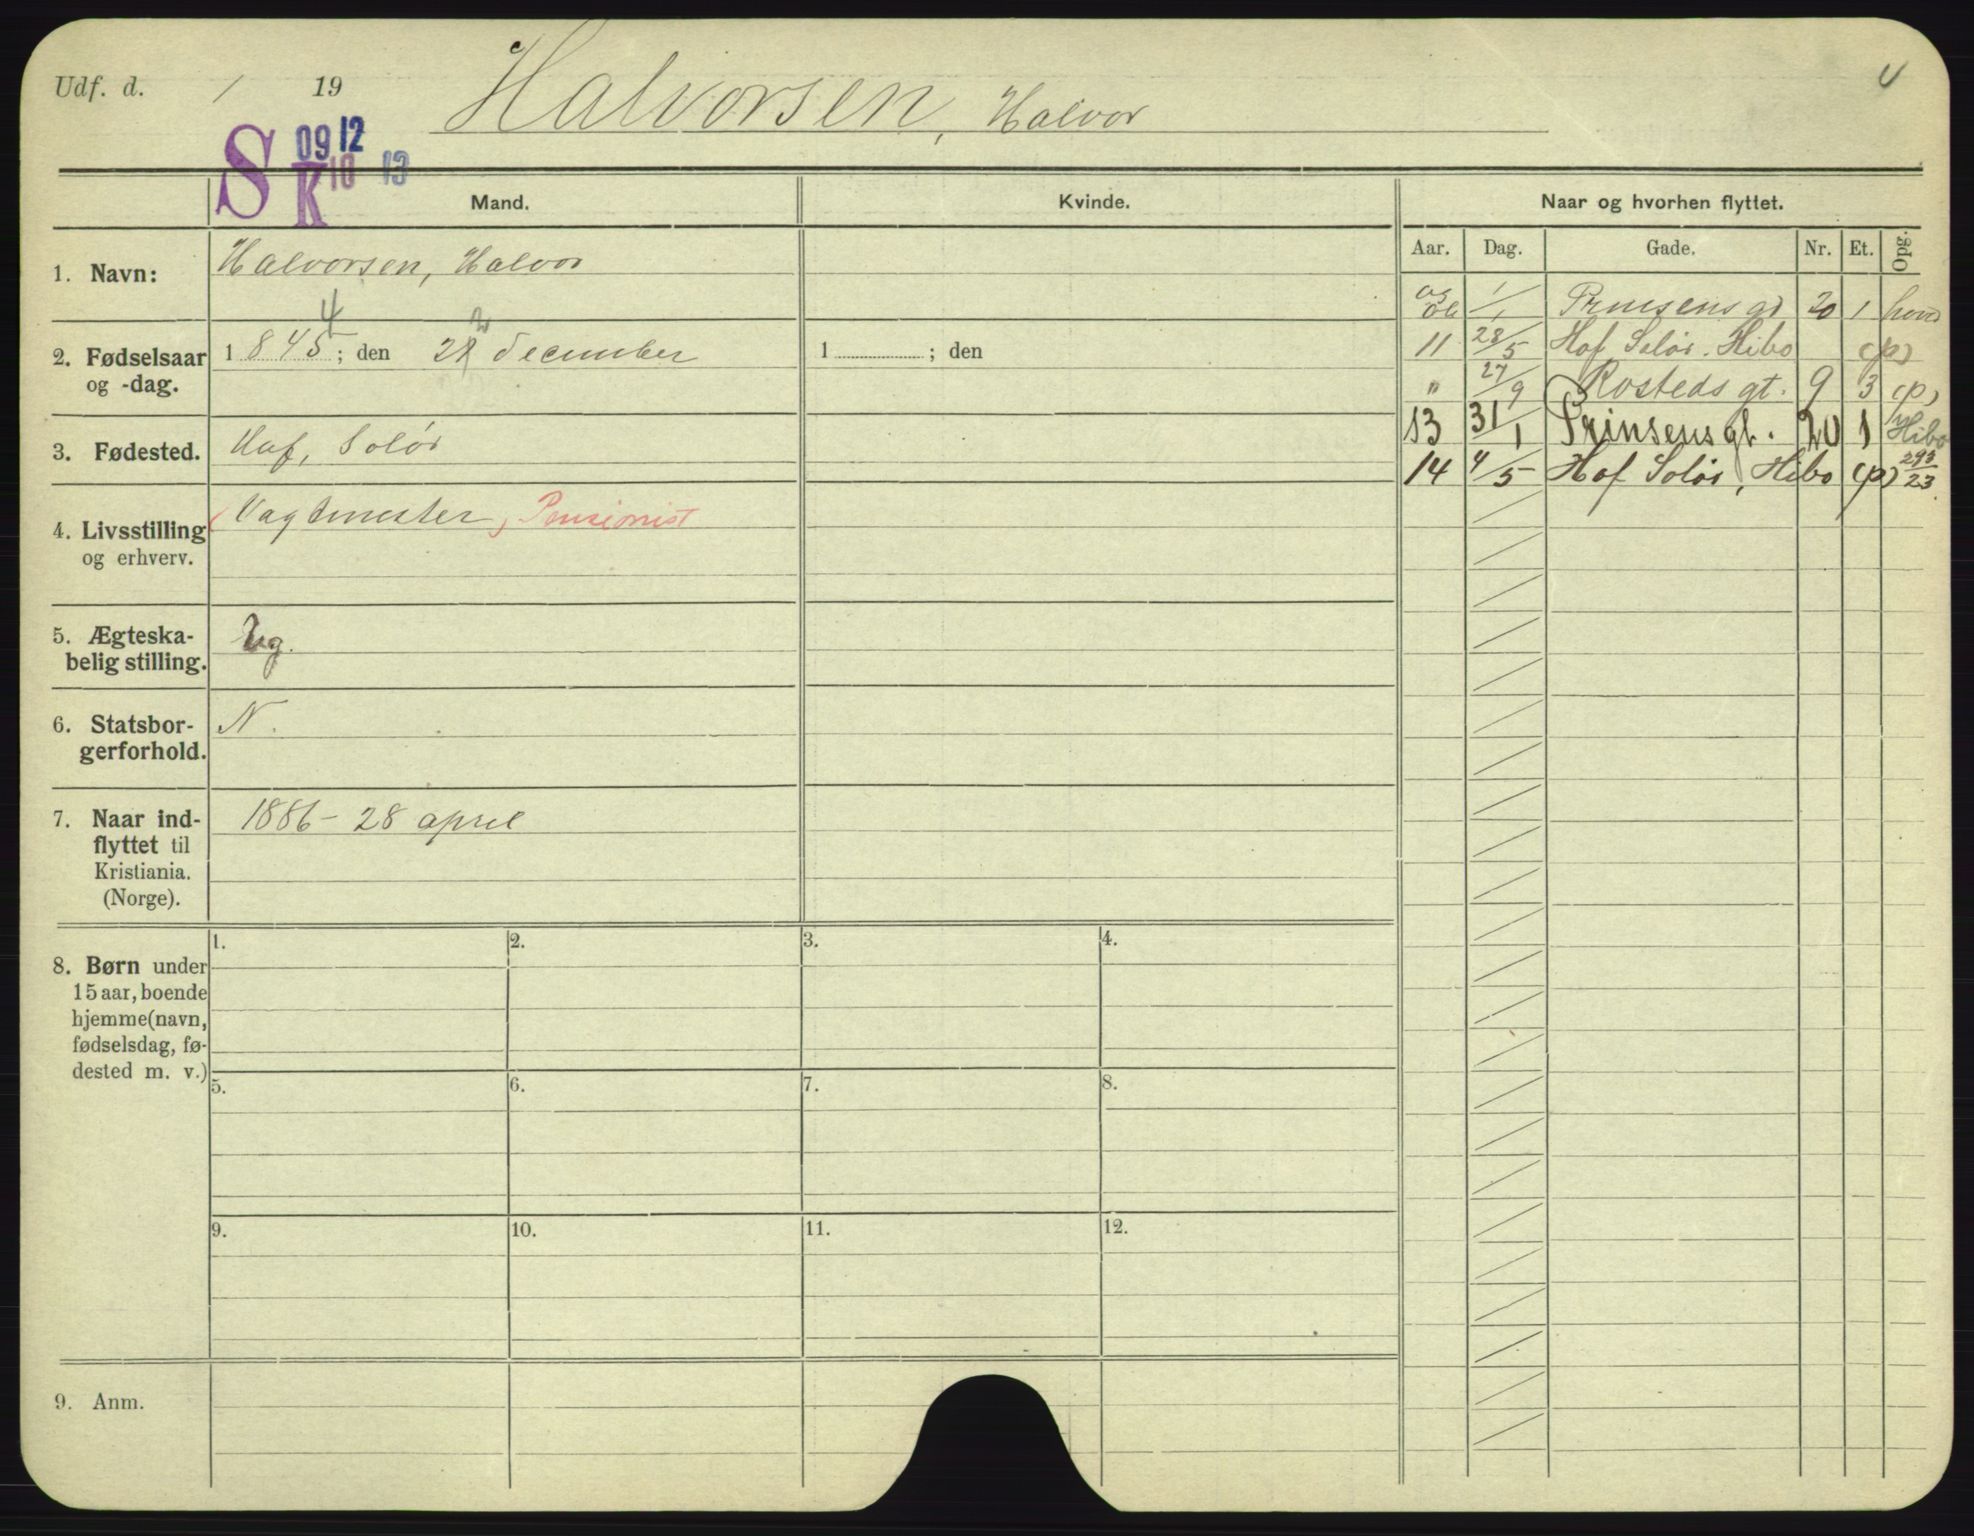 Udf. d. / 19 Halvorsen, Halvor
S 09 12
K 10 13
Mand. Kvinde. Naar og hvorhen flyttet.
Aar. Dag. Gade. Nr. Et. Opg.
1. Navn: Halvorsen, Halvor
4 2
2. Fødselsaar og -dag. 1 845 ; den 28 december 1 ; den
3. Fødested. Hof, Solør
4. Livsstilling og erhverv. (Vagtmester) Pensionist
5. Ægteska-
belig stilling. Ug.
6. Statsbor-
gerforhold. N.
7. Naar ind-
flyttet til
Kristiania.
(Norge). 1886 - 28 april
1/1 Prinsens gt 20 1
11 28/5 Hof Solør. Hibo (p)
" 27/9 Rosteds gt. 9 3 (p)
13 31/1 Prinsens gt. 20 1 Hibo
14 4/5 Hof Solør, Hibo (p) 293/23
8. Børn under
15 aar, boende
hjemme (navn,
fødselsdag, fø-
dested m. v.)
1. 2. 3. 4.
5. 6. 7. 8.
9. 10. 11. 12.
9. Anm.